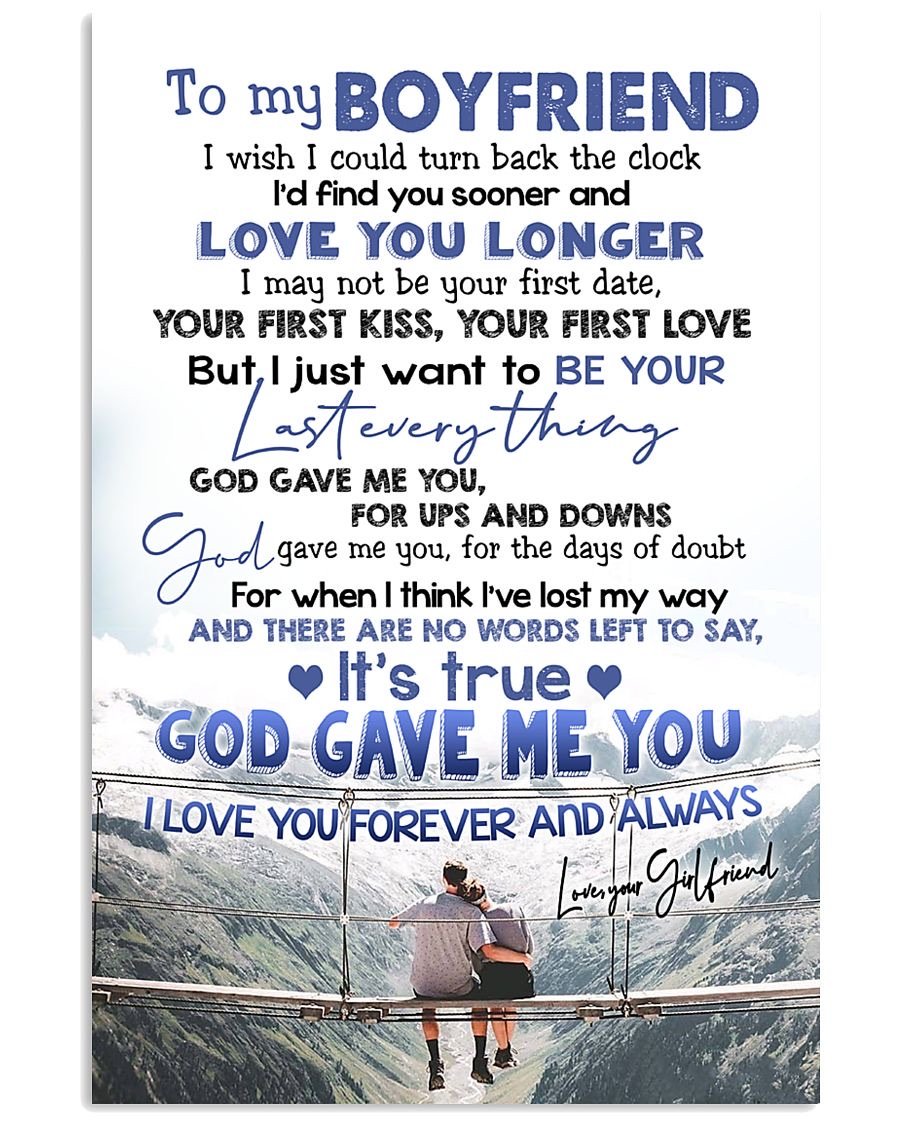 To my BOYFRIEND
I wish I could turn back the clock
I'd find you sooner and
LOVE YOU LONGER
I may not be your first date,
YOUR FIRST KISS, YOUR FIRST LOVE
But I just want to BE YOUR
Last everything
GOD GAVE ME YOU,
FOR UPS AND DOWNS
God gave me you, for the days of doubt
For when I think I've lost my way
AND THERE ARE NO WORDS LEFT TO SAY,
It's true
GOD GAVE ME YOU
I LOVE YOU FOREVER AND ALWAYS
Love, your Girlfriend